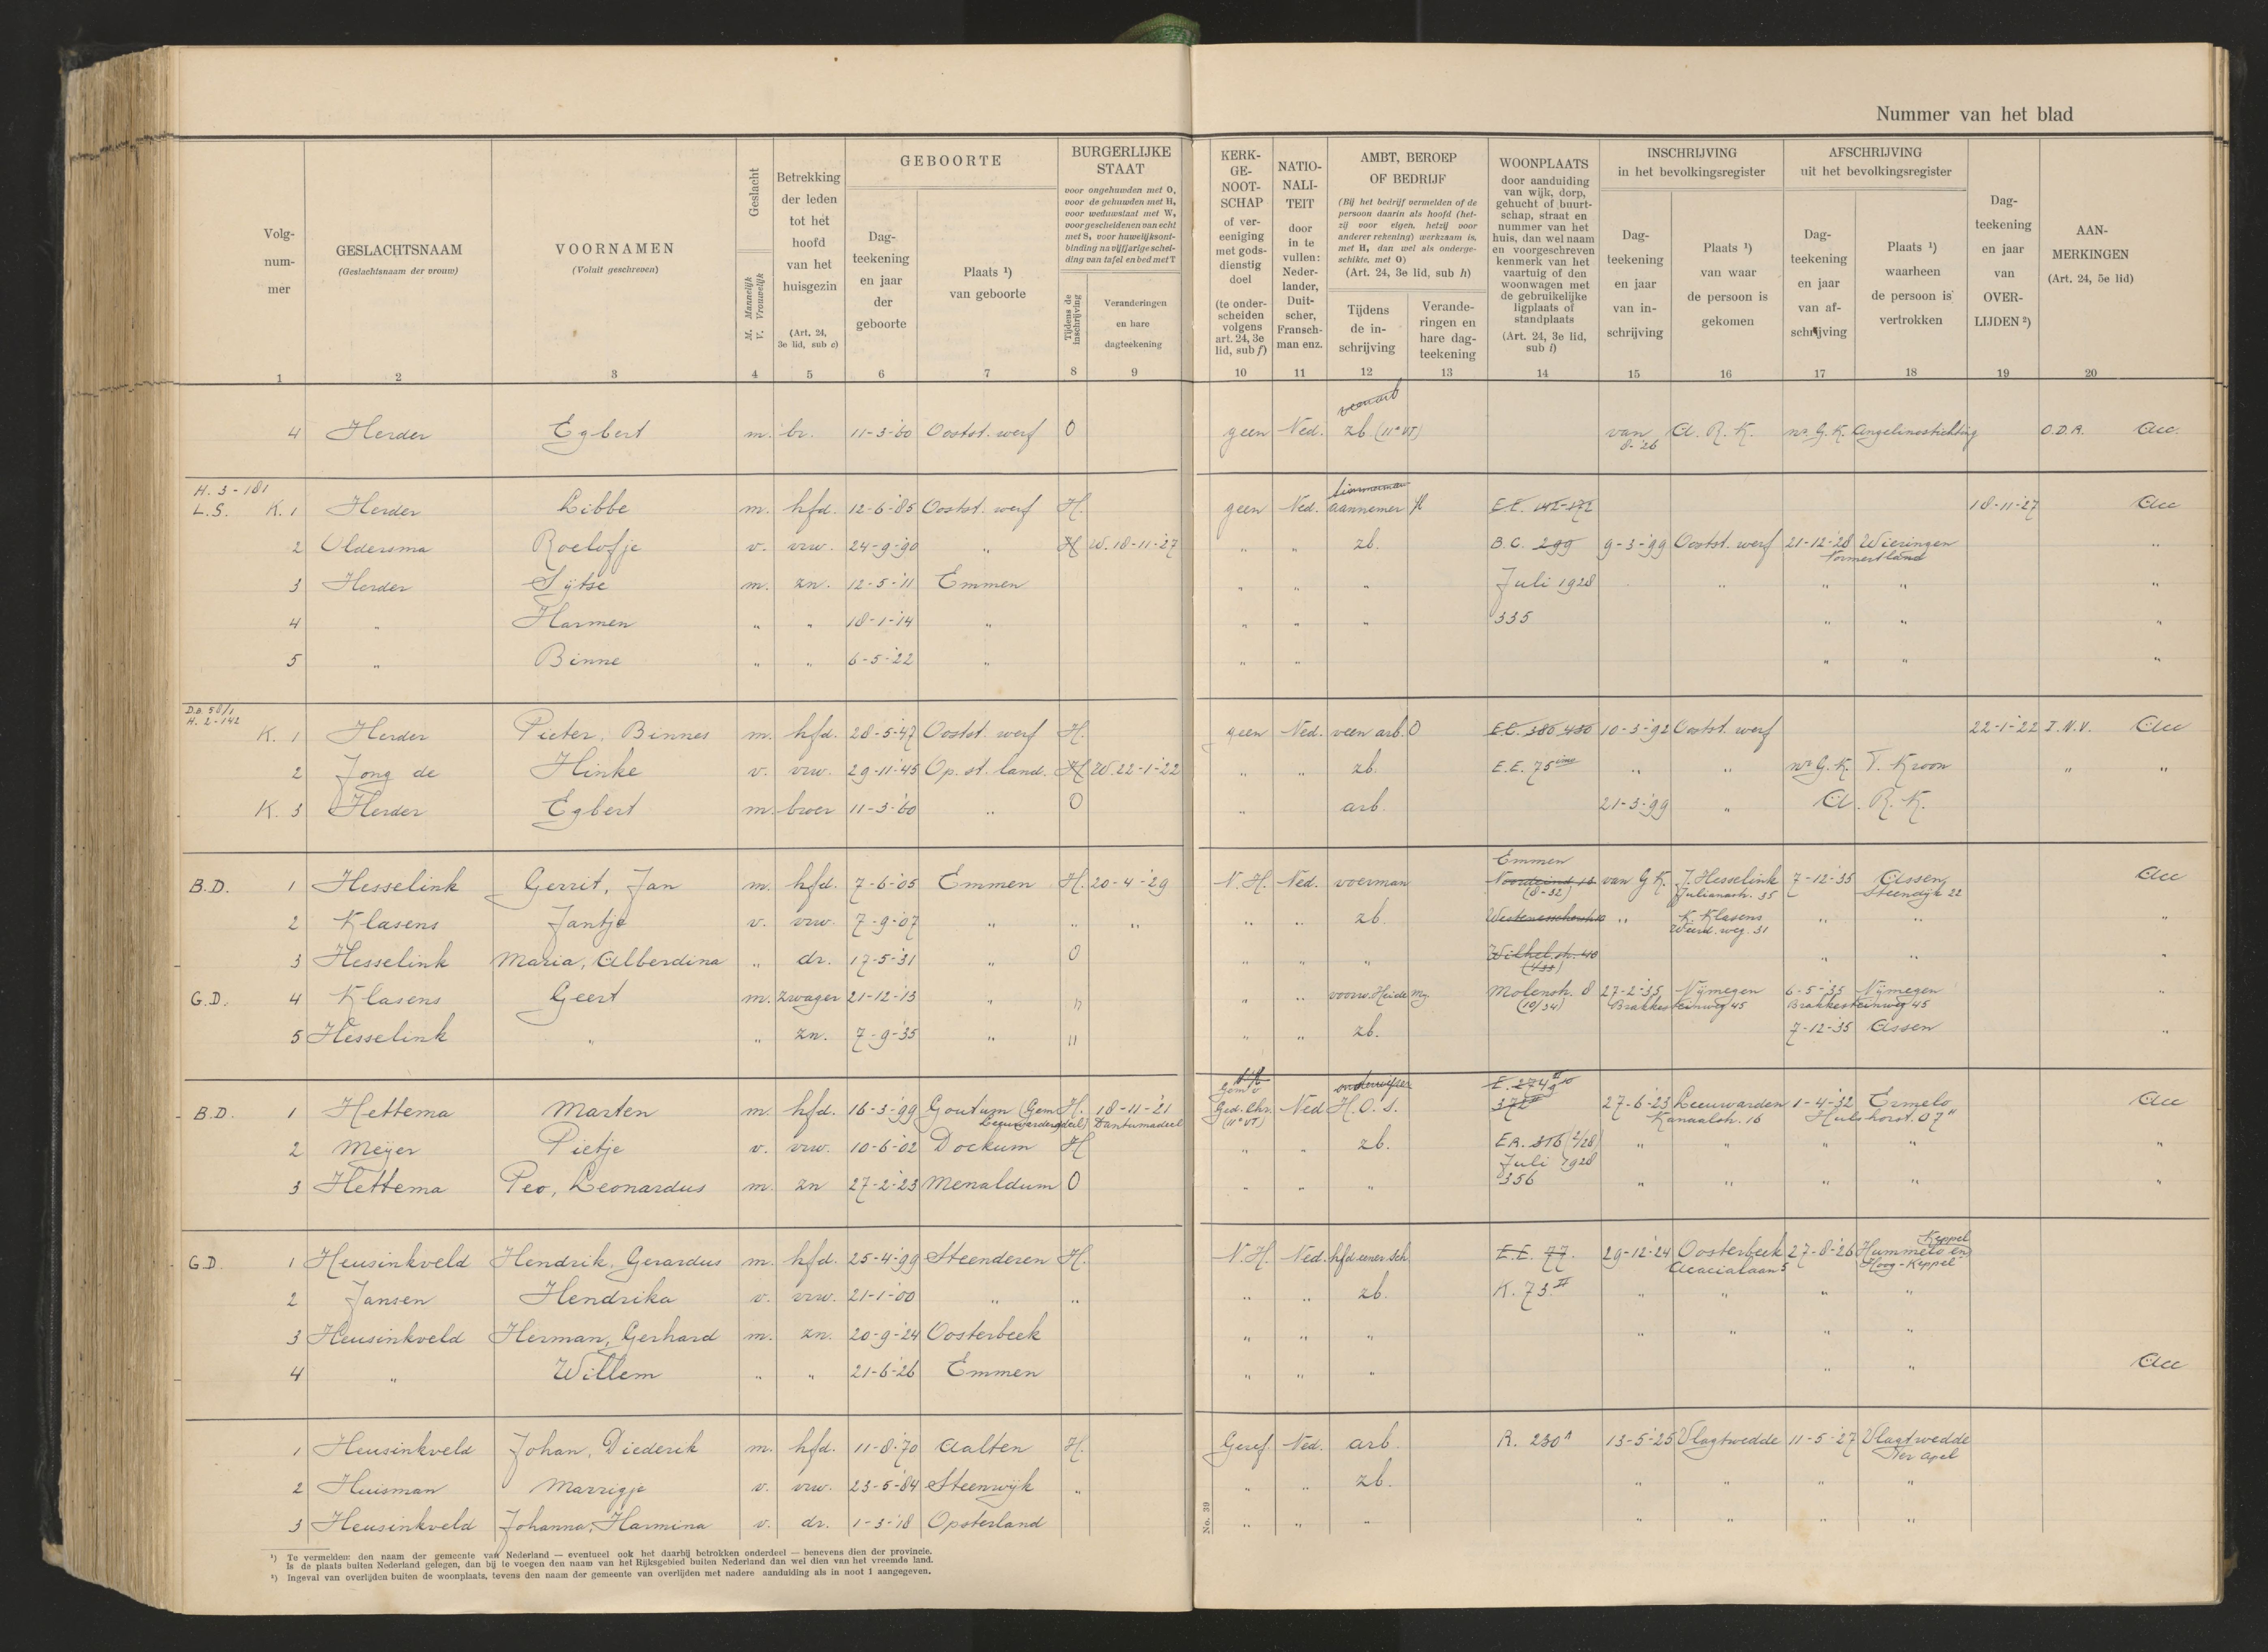 Nummer van het blad
Volg-
num-
mer
GESLACHTSNAAM
(Geslachtsnaam der vrouw)
VOORNAMEN
(Voluit geschreven)
Geslacht
M. Mannelijk
V. Vrouwelijk
Betrekking
der leden
tot het
hoofd
van het
huisgezin
(Art. 24,
3e lid, sub c)
GEBOORTE
Dag-
teekening
en jaar
der
geboorte
Plaats ¹)
van geboorte
BURGERLIJKE
STAAT
voor ongehuwden met O,
voor de gehuwden met H,
voor weduwstaat met W,
voor gescheidenen van echt
met S, voor huwelijksont-
binding na vijfjarige schei-
ding van tafel en bed met T
Tijdens de
inschrijving
Veranderingen
en hare
dagteekening
KERK-
GE-
NOOT-
SCHAP
of ver-
eeniging
met gods-
dienstig
doel
(te onder-
scheiden
volgens
art. 24, 3e
lid, sub f)
NATIO-
NALI-
TEIT
door
in te
vullen:
Neder-
lander,
Duit-
scher,
Fransch-
man enz.
AMBT, BEROEP
OF BEDRIJF
(Bij het bedrijf vermelden of de
persoon daarin als hoofd (het-
zij voor eigen, hetzij voor
anderer rekening) werkzaam is,
met H, dan wel als onderge-
schikte, met O)
(Art. 24, 3e lid, sub h)
Tijdens
de in-
schrijving
Verande-
ringen en
hare dag-
teekening
WOONPLAATS
door aanduiding
van wijk, dorp,
gehucht of buurt-
schap, straat en
nummer van het
huis, dan wel naam
en voorgeschreven
kenmerk van het
vaartuig of den
woonwagen met
de gebruikelijke
ligplaats of
standplaats
(Art. 24, 3e lid,
sub i)
INSCHRIJVING
in het bevolkingsregister
Dag-
teekening
en jaar
van in-
schrijving
Plaats ¹)
van waar
de persoon is
gekomen
AFSCHRIJVING
uit het bevolkingsregister
Dag-
teekening
en jaar
van af-
schrijving
Plaats ¹)
waarheen
de persoon is
vertrokken
Dag-
teekening
en jaar
van
OVER-
LIJDEN ²)
AAN-
MERKINGEN
(Art. 24, 5e lid)
1 2 3 4 5 6 7 8 9 10 11 12 13 14 15 16 17 18 19 20
veenarb
4 Herder Egbert m. br. 11-3-'60 Oostst. werf O geen Ned. zb. (11e VT) van A. R. K. nr. G. K. Angelinostichting O.D.R. Acc.
8-'26
H. 3-181
timmerman
L.S. K. 1 Herder Libbe m. hfd. 12-6-'85 Oostst. werf H. geen Ned. aannemer H 18-11-'27 Acc
2 Oldersma Roelofje v. vrw. 24-9-'90 " H W. 18-11-'27 " " zb. B.C. 299 9-3-'99 Oostst. werf 21-12-'28 Wieringen "
3 Herder Sijtse m. zn. 12-5-'11 Emmen " " " Juli 1928 " " " "
4 " Harmen " " 18-1-'14 " " " " 335 " " "
5 " Binne " " 6-5-'22 " " " " " "
D.B. 58/1
H. 2-142
K. 1 Herder Pieter, Binnes m. hfd. 28-5-'47 Oostst. werf H. geen Ned. veen arb. O E.C. 380 480 10-3-'92 Oostst. werf 22-1-'22 I.N.V. Acc
2 Jong de Hinke v. vrw. 29-11-'45 Op. st. land. H W. 22-1-'22 " " zb. E.E. 75 " " nr. G. K. T. Kroon " "
K. 3 Herder Egbert m. broer 11-3-'60 " O " arb. 21-3-'99 " A. R. K.
Emmen
B.D. 1 Hesselink Gerrit, Jan m. hfd. 7-6-'05 Emmen H. 20-4-'29 N.H. Ned. voerman Noordeind 13 van G K. J. Hesselink 7-12-'35 Assen Acc
(8-32) Julianastr. 35 Steendijk 22
2 Klasens Jantje v. vrw. 7-9-'07 " " " " " zb. " K. Klasens " " "
Weerd. weg. 31
3 Hesselink Maria, Alberdina " dr. 17-5-'31 " O " " " Wilhel.str. 40 " " "
G.D. 4 Klasens Geert m. zwager 21-12-'13 " " " " voorw. Heide Mij. Molenstr. 8 27-2-'35 Nijmegen 6-5-'35 Nijmegen "
(10/34) Brakkesteinweg 45 Brakkesteinweg 45
5 Hesselink " " zn. 7-9-'35 " " " " zb. 7-12-'35 Assen "
onderwijzer
B.D. 1 Hettema Marten m. hfd. 16-3-'99 Goutum (Gem. H. 18-11-'21 Ged. Chr. Ned H.O.S. 372 27-6-'23 Leeuwarden 1-4-'32 Ermelo Acc
Leeuwarderadeel) Dantumadeel (11e VT) Kanaalstr. 16 Hulshorst. 07"
2 Meijer Pietje v. vrw. 10-6-'02 Dockum H " " zb. E.R. 316 (2/28) " " " " "
Juli 1928
3 Hettema Peo, Leonardus m. zn 27-2-'23 Menaldum O " " " 356 " " " " "
Keppel
G.D. 1 Heusinkveld Hendrik. Gerardus m. hfd. 25-4-'99 Steenderen H. N.H. Ned. hfd eener sch E.E. 77. 29-12-'24 Oosterbeek 27-8-'26 Hummelo en
Acacialaan 5 Hoog-Keppel
2 Jansen Hendrika v. vrw. 21-1-'00 " " " " zb. K. 73 II " " " "
3 Heusinkveld Herman, Gerhard m. zn. 20-9-'24 Oosterbeek " " " " " " "
4 " Willem " " 21-6-'26 Emmen " " " " " Acc
1 Heusinkveld Johan, Diederik m. hfd. 11-8-'70 Aalten H. Geref Ned. arb. R. 230 A 13-5-'25 Vlagtwedde 11-5-'27 Vlagtwedde
Ter Apel
2 Huisman Marrigje v. vrw. 23-5-'84 Steenwijk " " " zb. " " " "
3 Heusinkveld Johanna, Harmina v. dr. 1-3-'18 Opsterland " " " " " " "
No. 39
¹) Te vermelden: den naam der gemeente van Nederland — eventueel ook het daarbij betrokken onderdeel — benevens dien der provincie.
Is de plaats buiten Nederland gelegen, dan bij te voegen den naam van het Rijksgebied buiten Nederland dan wel dien van het vreemde land.
²) Ingeval van overlijden buiten de woonplaats, tevens den naam der gemeente van overlijden met nadere aanduiding als in noot 1 aangegeven.